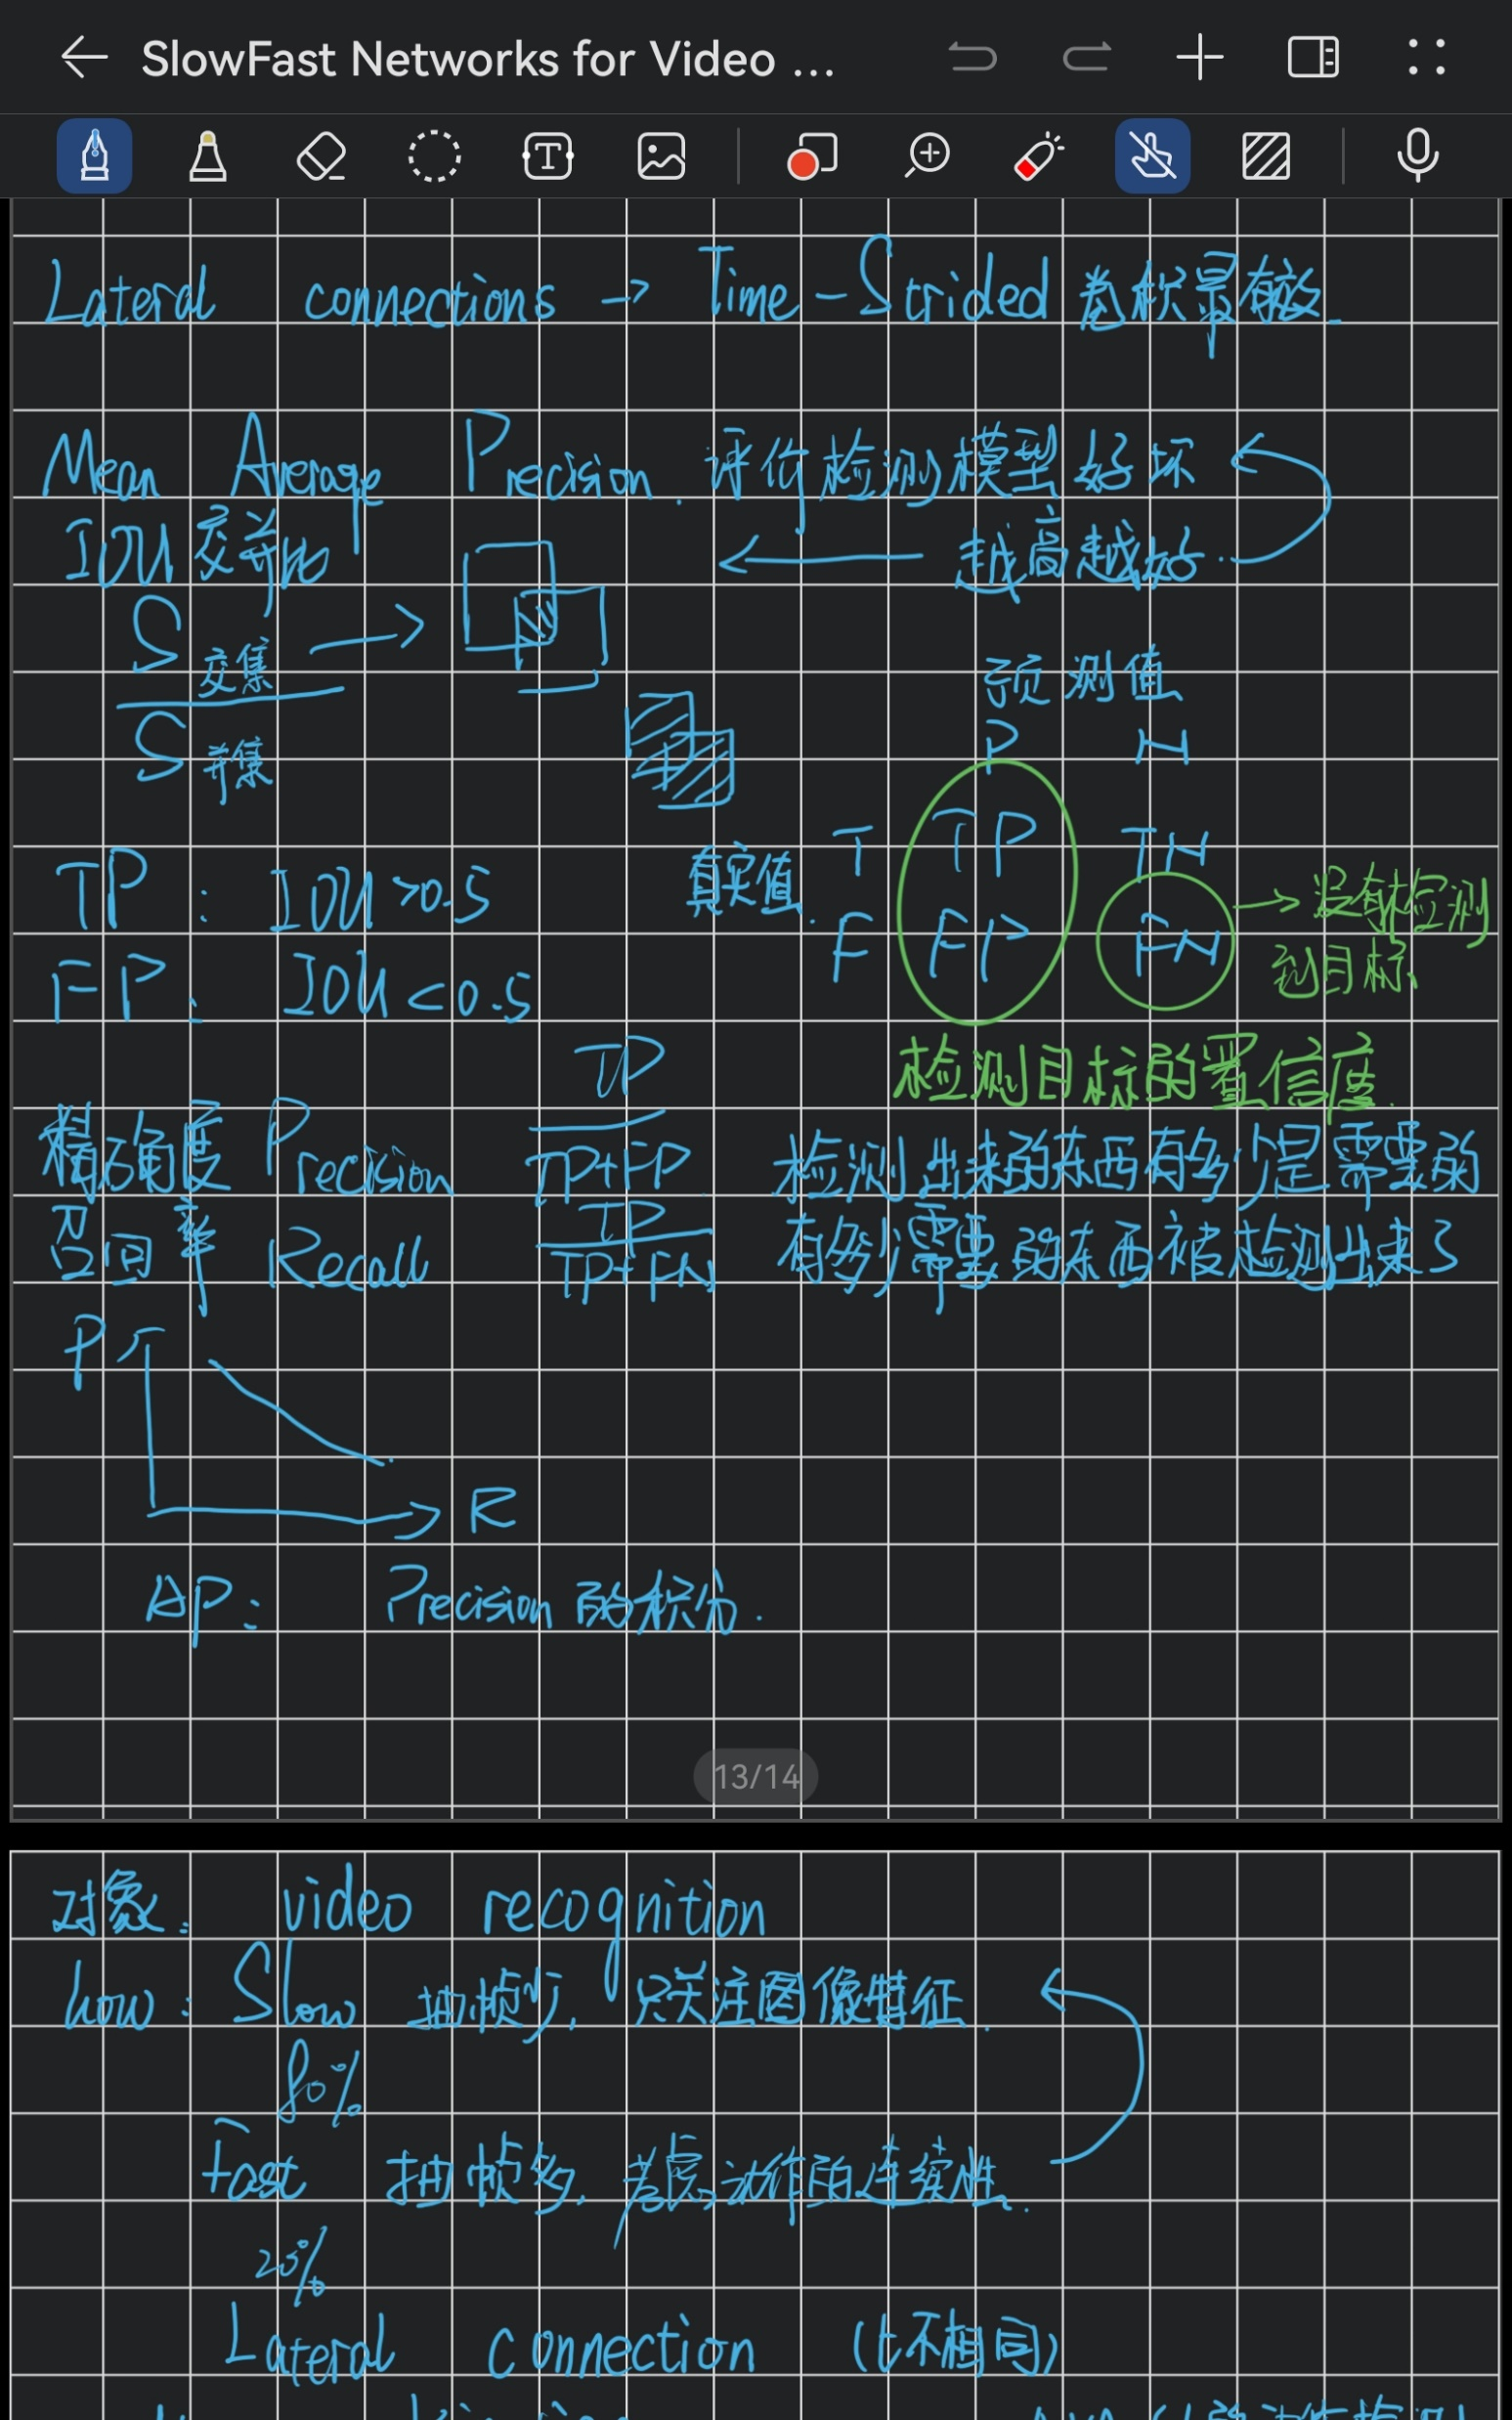 SlowFast Networks for Video ...
Lateral connections → Time-Strided 卷积最有效.
Mean Average Precision. 评价检测模型好坏
IOU 交并比 ← 越高越好.
S交集 →
S并集
预测值
P N
真实值. T TP TN
F FP FN → 没有检测
到目标
TP: IOU >0.5
FP: IOU <0.5
检测目标的置信度.
精确度 Precision TP
TP+FP 检测出来的东西有多少是需要的
召回率 Recall TP
TP+FN 有多少需要的东西被检测出来了
P
R
AP: Precision 的积分.
13/14
对象: video recognition
how: Slow 抽帧少, 只关注图像特征.
80%
Fast 抽帧多, 考虑动作的连续性.
20%
Lateral connection (t不相同)